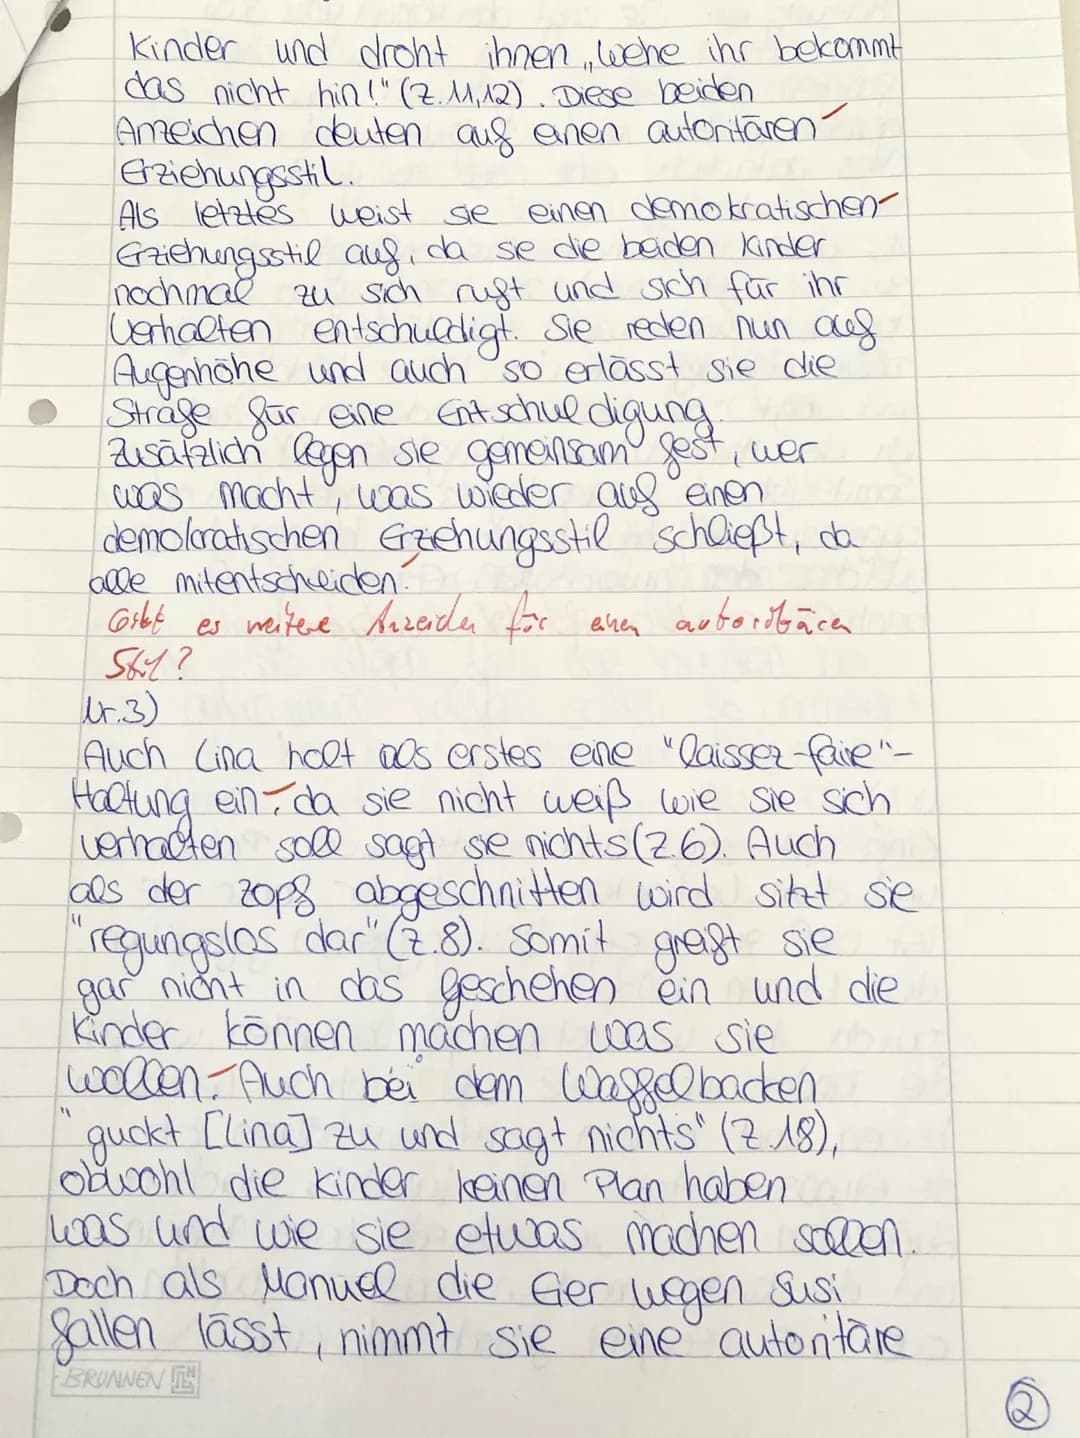 Kinder und droht ihnen „Wehe ihr bekommt
das nicht hin!" (Z.11,12). Diese beiden
Anzeichen deuten auf einen autoritären
Erziehungsstil.
Als letztes weist sie einen demokratischen
Erziehungsstil auf, da sie die beiden Kinder
nochmal zu sich ruft und sich für ihr
Verhalten entschuldigt. Sie reden nun auf
Augenhöhe und auch so erlässt sie die
Strafe für eine Entschuldigung.
Zusätzlich legen sie gemeinsam fest, wer
was macht, was wieder auf einen
demokratischen Erziehungsstil schließt, da
alle mitentscheiden.
Gibt es weitere Anzeichen für einen autoritären
Stil?
Nr.3)
Auch Lina holt als erstes eine "laissez-faire"-
Haltung ein, da sie nicht weiß wie sie sich
verhalten soll sagt sie nichts (Z.6). Auch
als der Zopf abgeschnitten wird sitzt sie
"regungslos dar" (Z.8). Somit greift sie
gar nicht in das Geschehen ein und die
Kinder können machen was sie
wollen. Auch bei dem Waffelbacken
"guckt [Lina] zu und sagt nichts" (Z.18),
obwohl die Kinder keinen Plan haben
was und wie sie etwas machen sollen.
Doch als Manuel die Eier wegen Susi
fallen lässt, nimmt sie eine autoritäre
BRUNNEN
2